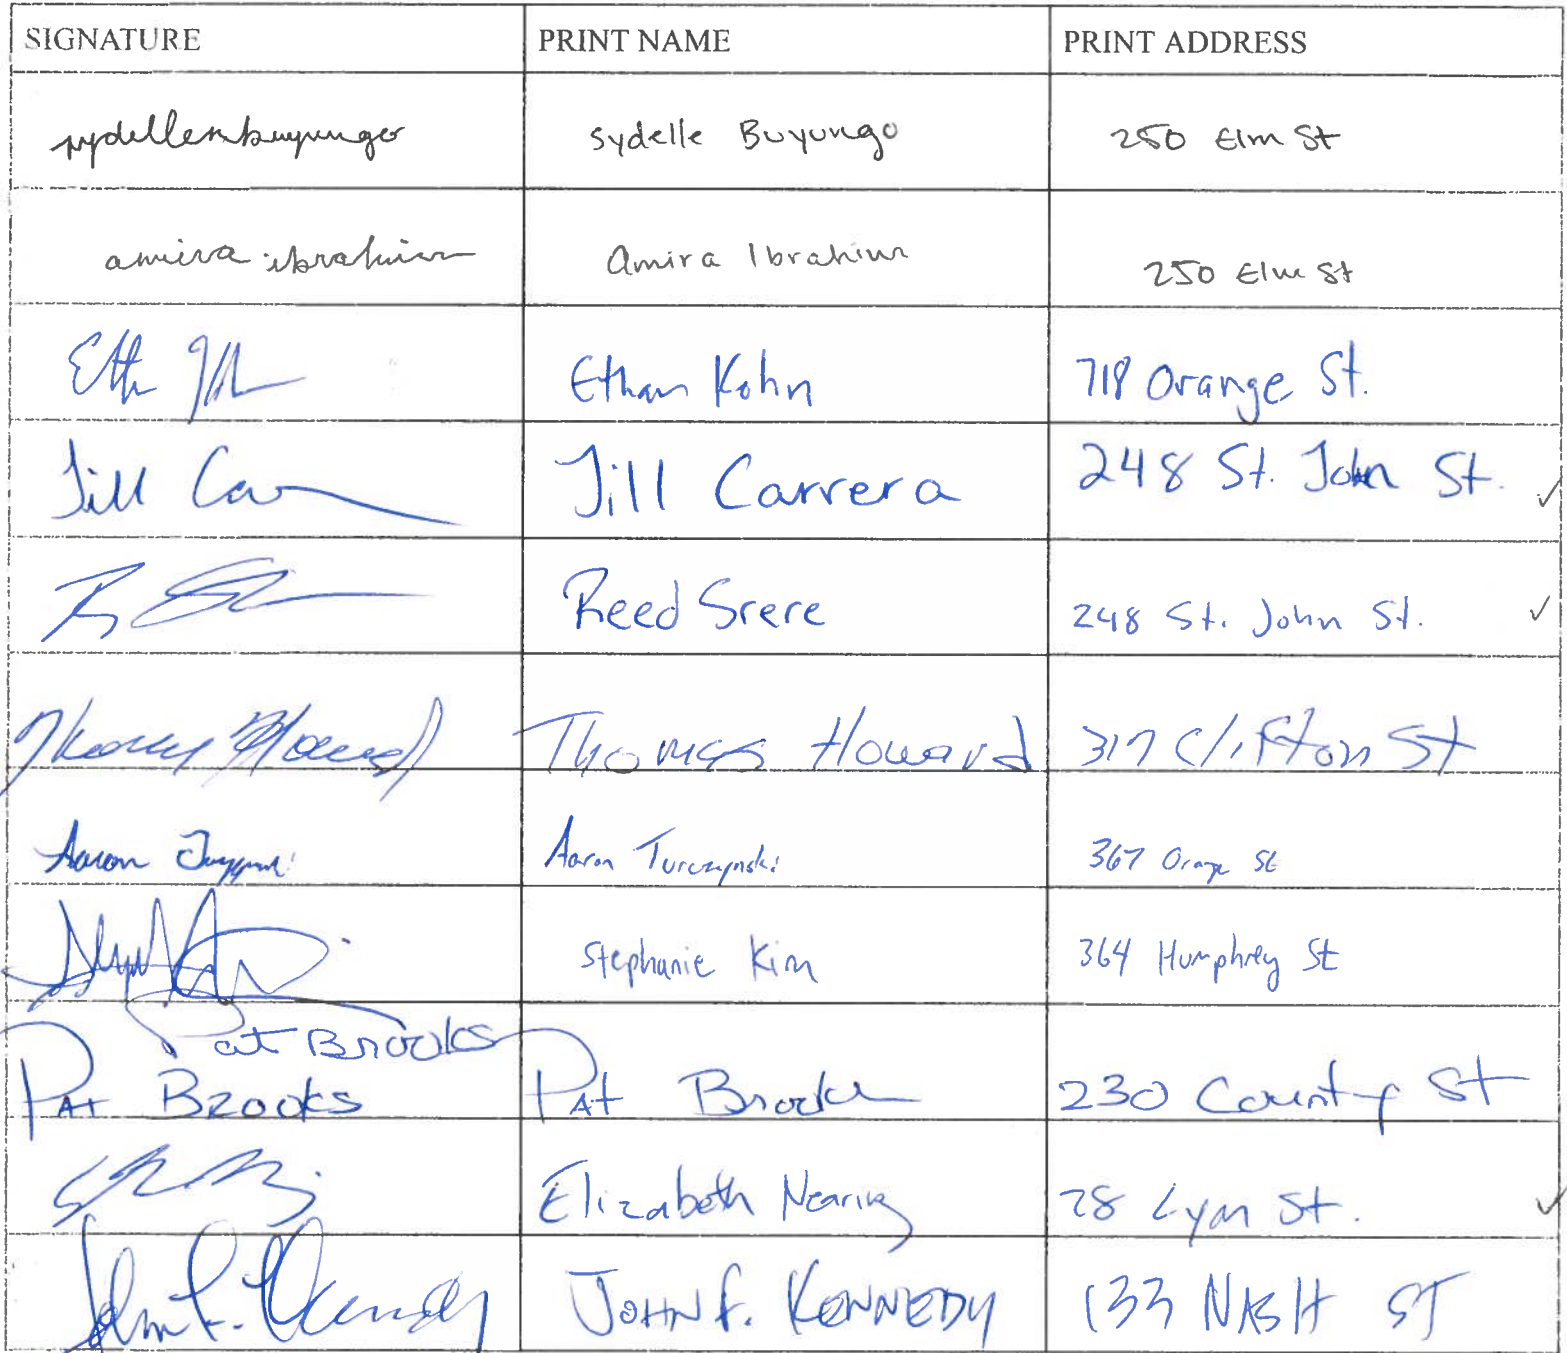 SIGNATURE PRINT NAME PRINT ADDRESS
sydellembuyungo Sydelle Buyungo 250 Elm St
amira ibrahim Amira Ibrahim 250 Elm St
Ethan Kohn 718 Orange St.
Jill Jill Carrera 248 St. John St. ✓
Reed Srere 248 St. John St. ✓
Thomas Howard Thomas Howard 317 Clifton St
Aaron Aaron Turczynski 367 Orange St
Stephanie Kim 364 Humphrey St
Pat Brooks
Pat Brooks Pat Brooks 230 County St
Elizabeth Nearing 28 Lyon St. ✓
John F. Kennedy JOHN F. KENNEDY 133 NASH ST